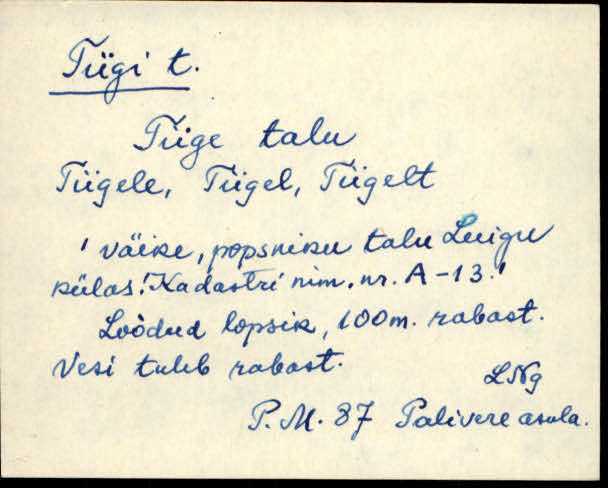 Tiigi t.
Tiige talu
Tiigele, Tiigel, Tiigelt
' väike, popsniku talu Luigu
külas! Kadastri nim. nr. A-13.'
Loòdud lopsik, 100m. rabast.
Vesi tuleb rabast.
LNg
P. M. 87 Palivere asula.